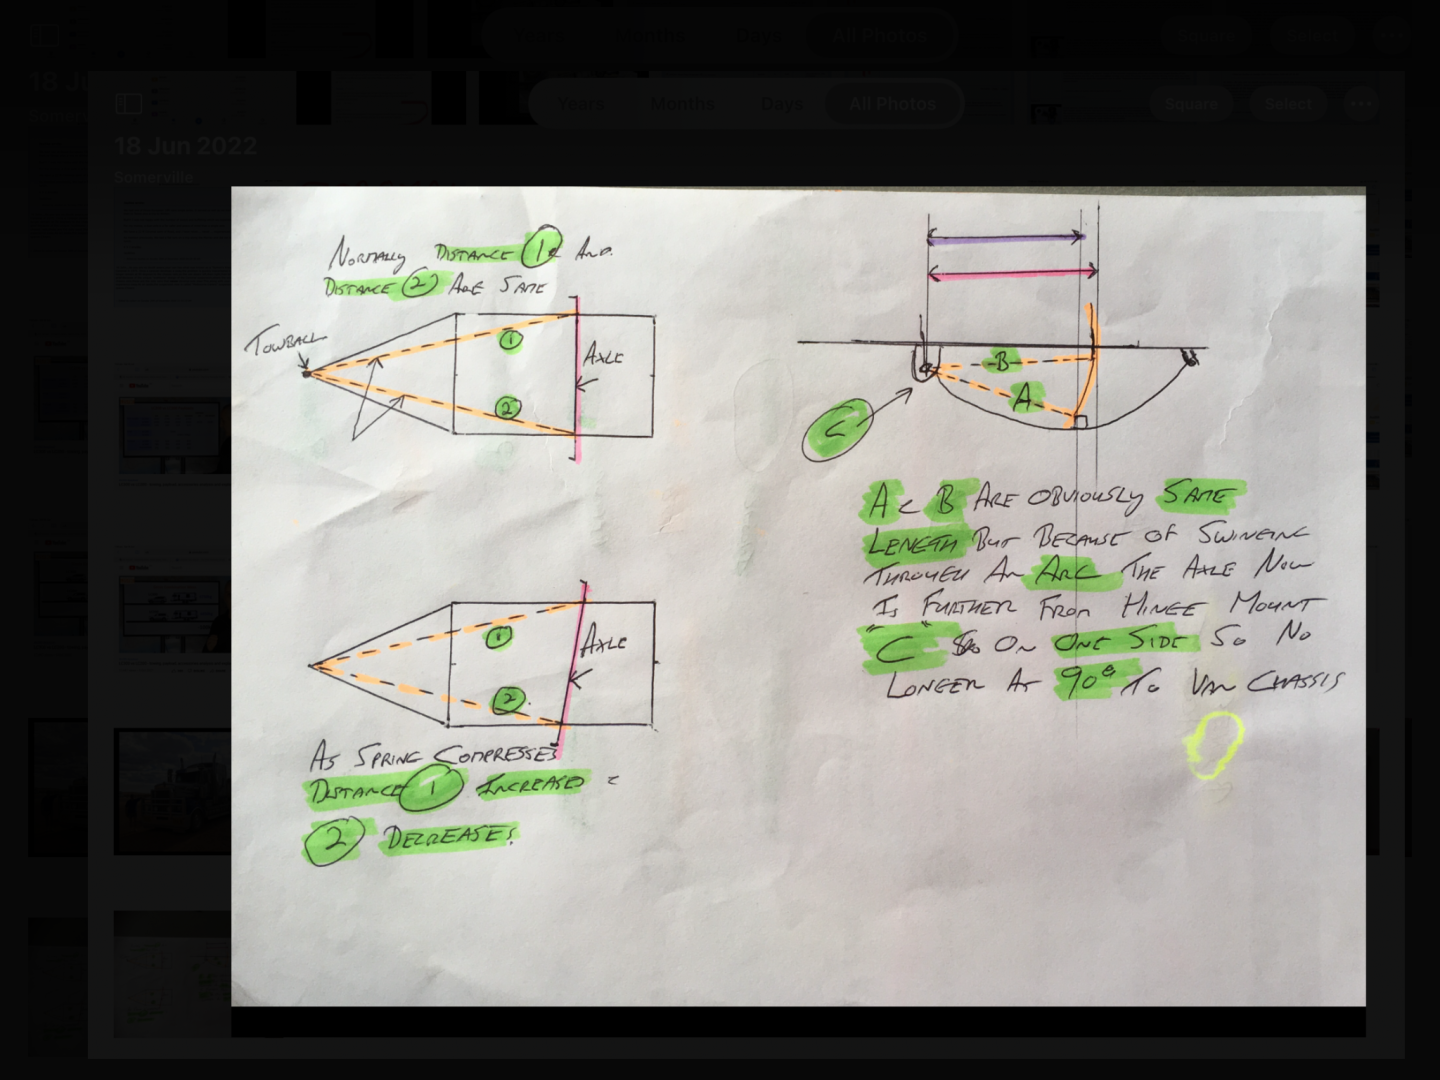 Years Months Days All Photos
Square Select
18 Jun 2022
Somerville
NORMALLY DISTANCE 1 AND
DISTANCE 2 ARE SAME
TOWBALL
1
AXLE
2
B
A
C
A & B ARE OBVIOUSLY SAME
LENGTH BUT BECAUSE OF SWINGING
THROUGH AN ARC THE AXLE NOW
IS FURTHER FROM HINGE MOUNT
"C" ON ONE SIDE SO NO
LONGER AT 90° TO VAN CHASSIS
1
AXLE
2
AS SPRING COMPRESSES
DISTANCE 1 INCREASED &
2 DECREASES